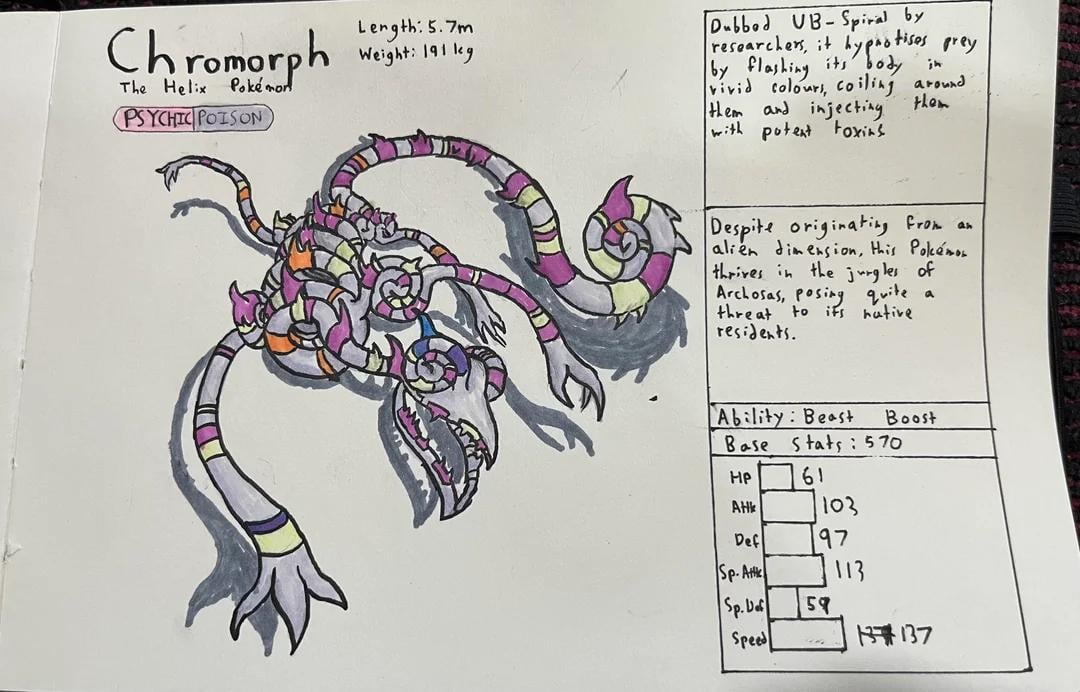 Chromorph
The Helix Pokémon
PSYCHIC POISON
Length: 5.7m
Weight: 191 kg
Dubbed UB-Spiral by
researchers, it hypnotises prey
by flashing its body in
vivid colours, coiling around
them and injecting them
with potent toxins
Despite originating from an
alien dimension, this Pokémon
thrives in the jungles of
Archosas, posing quite a
threat to its native
residents.
Ability: Beast Boost
Base Stats: 570
HP 61
Attk 103
Def 97
Sp. Attk 113
Sp. Def 59
Speed 137